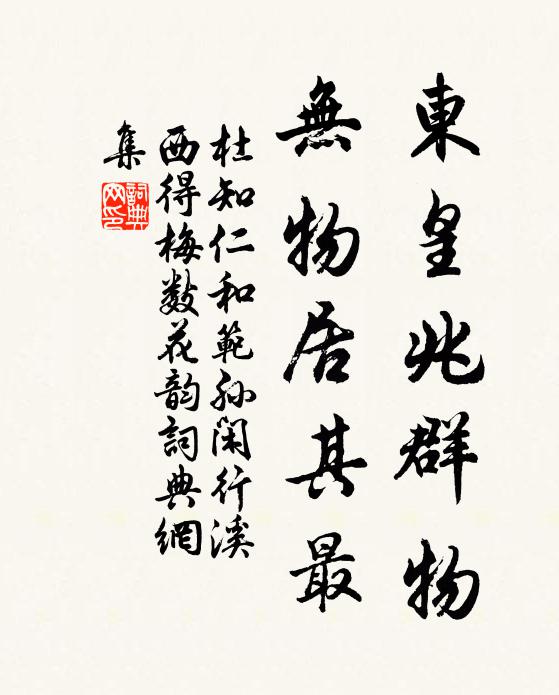 東皇兆群物
無物居其最
杜知仁和範孫閑行溪
西得梅数花韵詞典網
集
詞典
网印